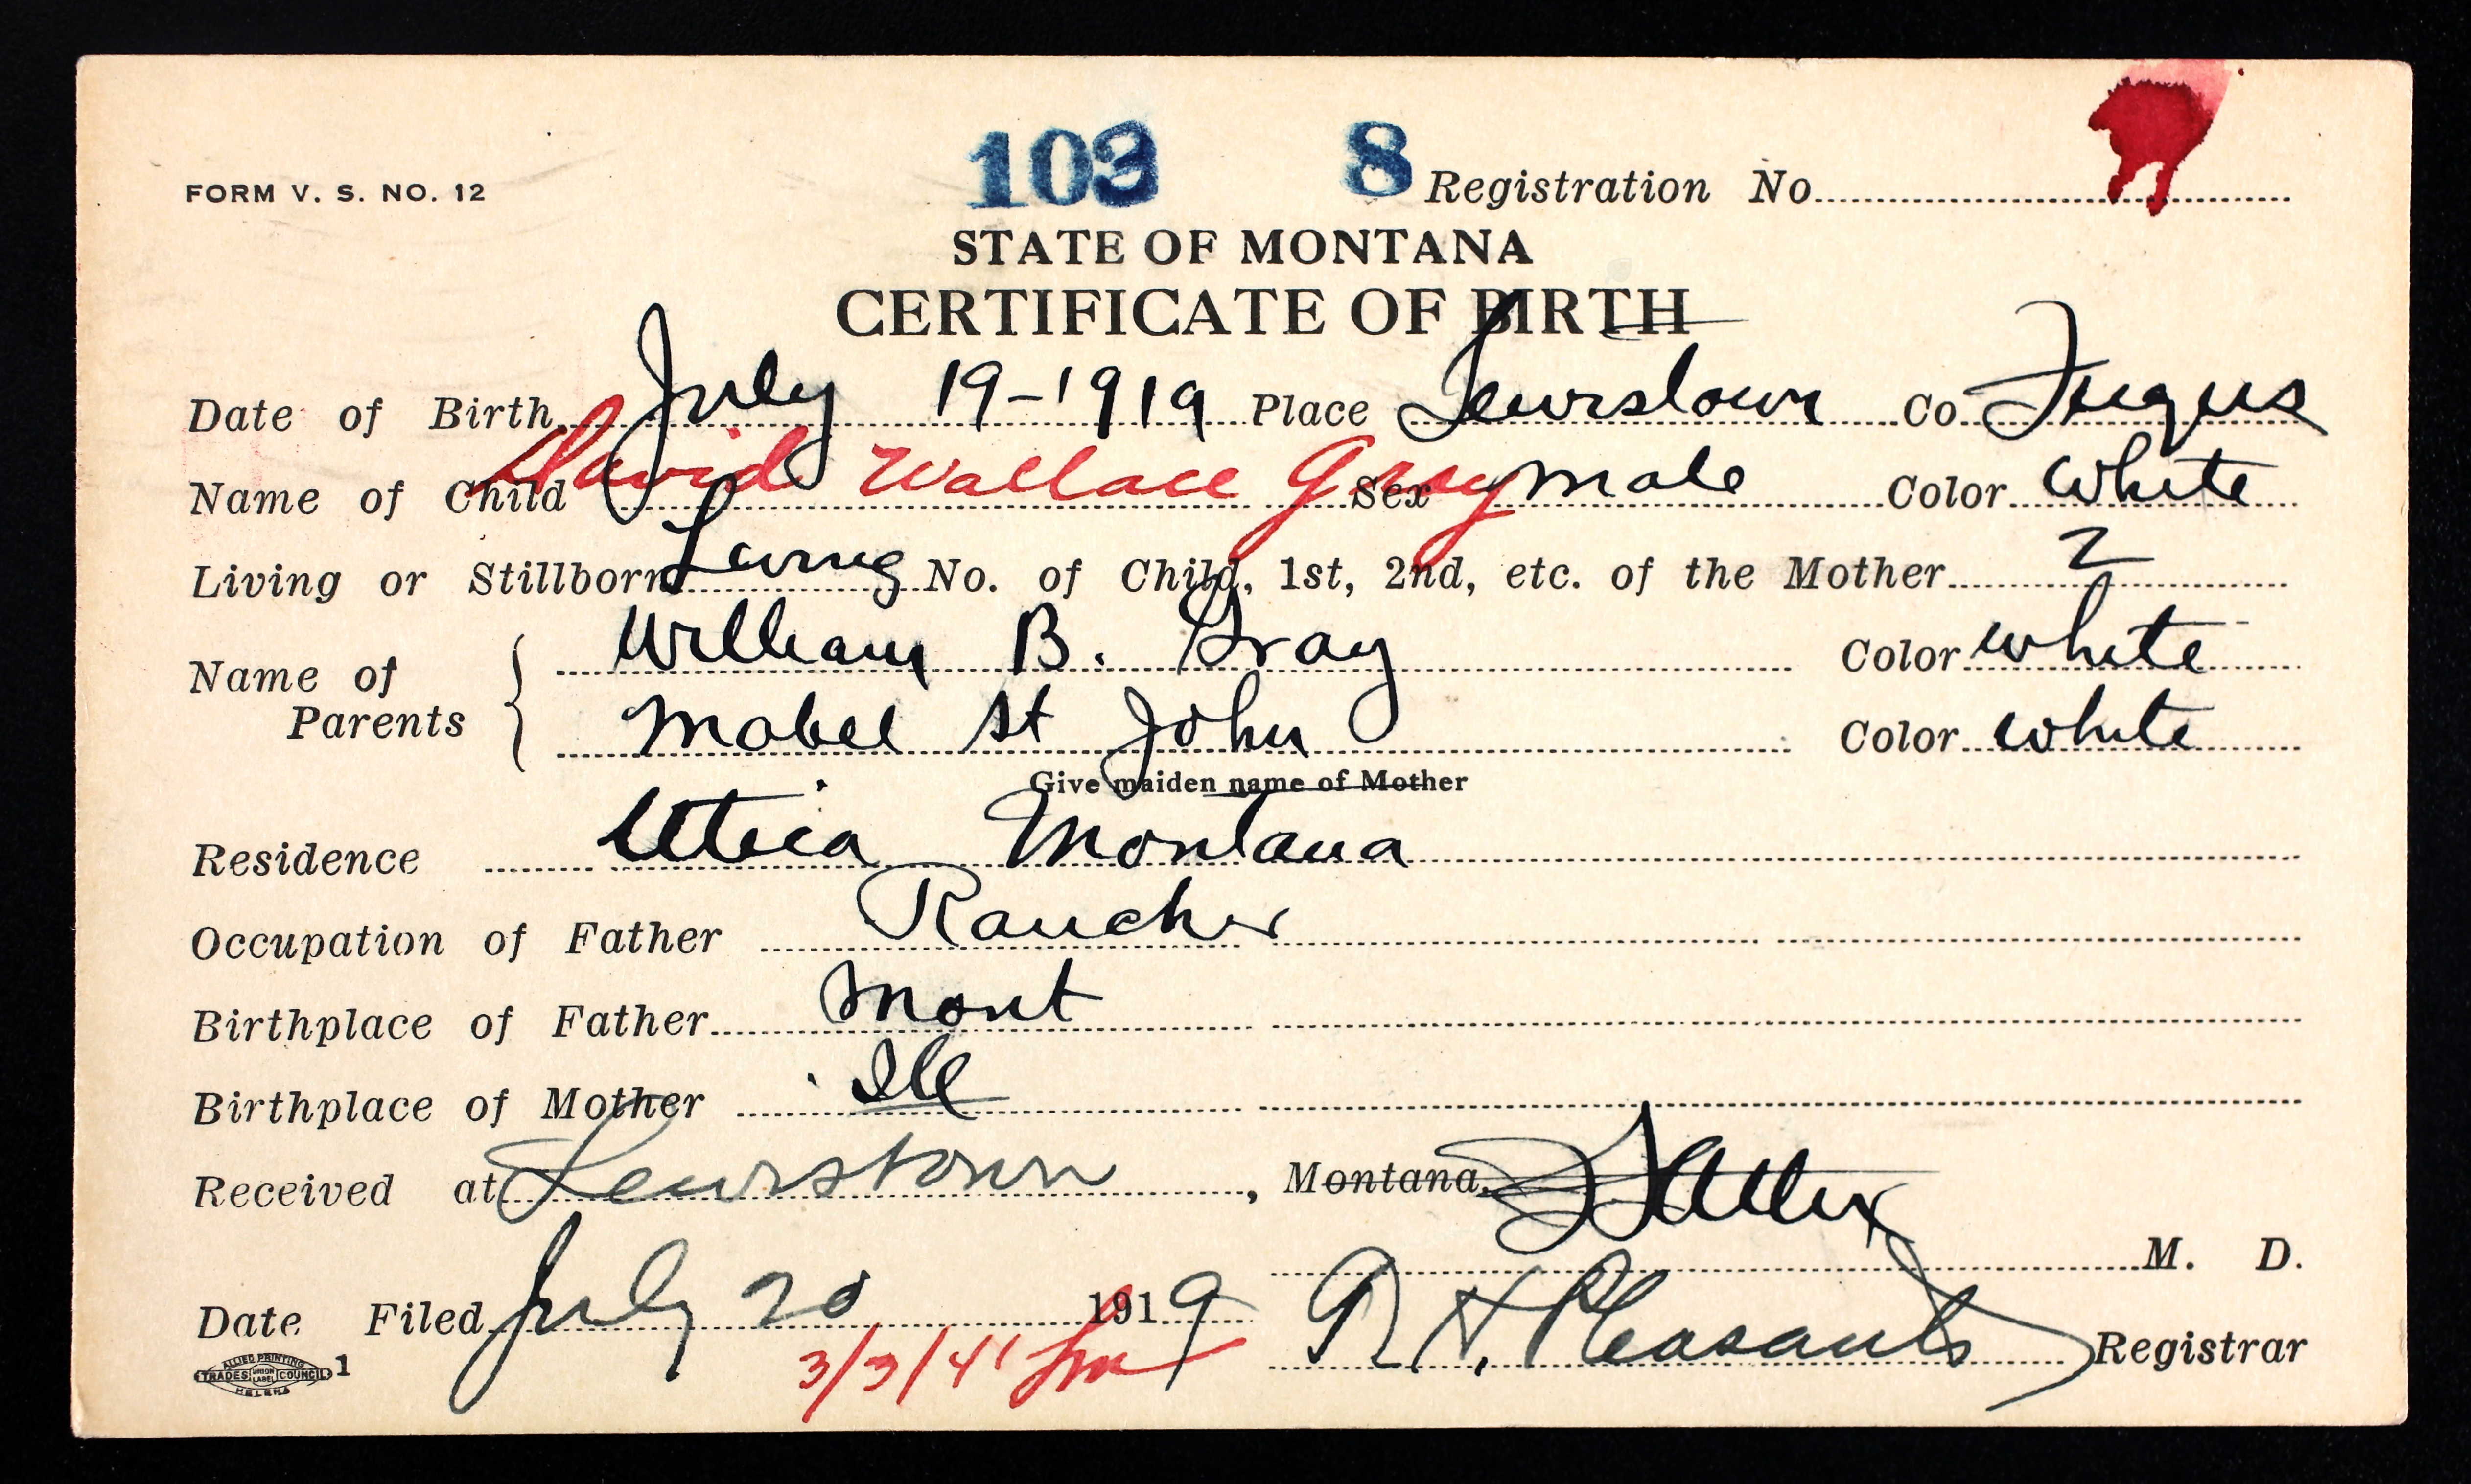 103 8 Registration No.
FORM V. S. NO. 12
STATE OF MONTANA
CERTIFICATE OF BIRTH
Date of Birth July 19-1919 Place Lewistown Co. Fergus
Name of Child David Wallace Gray Sex male Color white
Living or Stillborn Living No. of Child, 1st, 2nd, etc. of the Mother 2
Name of Parents William B. Gray Color white
Mabel St John Color white
Give maiden name of Mother
Residence Utica Montana
Occupation of Father Rancher
Birthplace of Father Mont
Birthplace of Mother Ill
Received at Lewistown, Montana.
M. D.
Date Filed July 20 1919 H. Pleasants Registrar
3/3/41
ALLIED PRINTING
TRADES UNION LABEL COUNCIL 1
HELENA